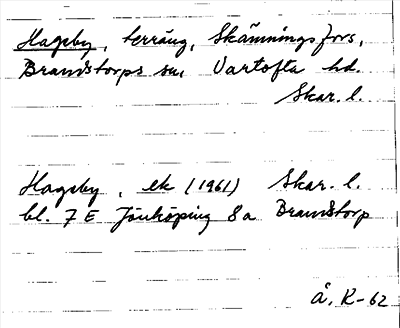 Hagsby, terräng, Skämningsfors,
Brandstorps sn, Vartofta hd.
Skar. l.
Hagsby, ek (1961) Skar. l.
bl. 7 E Jönköping 8a Brandstorp
å. R-62